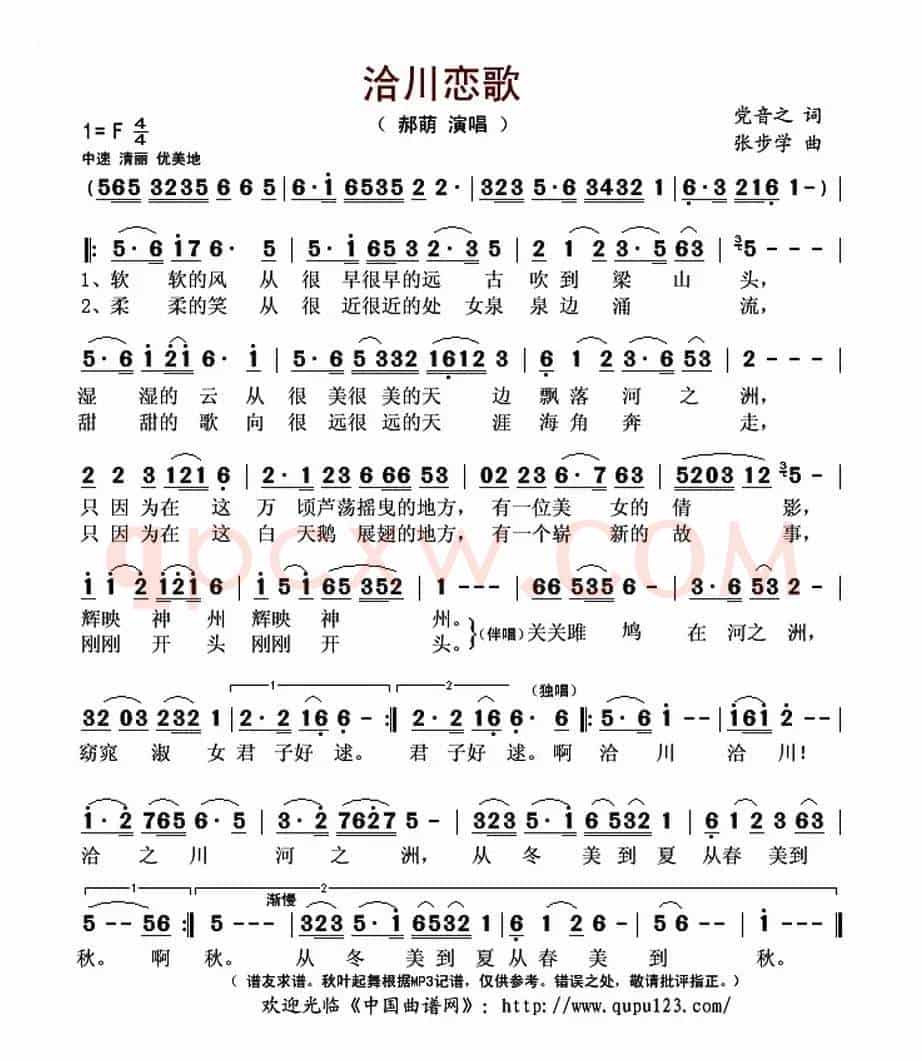 洽川恋歌
（ 郝萌 演唱 ）
党音之 词
张步学 曲
1=F 4/4
中速 清丽 优美地
(565 3235 6 6 5 | 6·i 6535 2 2· | 323 5·6 3432 1 | 6·3 216 1-) |
‖: 5·6 i76· 5 | 5·i 653 2·3 5 | 2 1 2 3·5 63 | 3 5 - - |
1、软 软的风 从 很 早很早的远 古 吹 到 梁 山 头，
2、柔 柔的笑 从 很 近很近的处 女泉 泉边 涌 流，
5·6 i 2i 6· i | 5·6 5 332 1612 3 | 6 1 2 3·6 53 | 2 - - - |
湿 湿的 云 从 很 美很 美的天 边 飘 落 河 之 洲，
甜 甜的 歌 向 很 远很 远的天 涯 海 角 奔 走，
2 2 3 121 6 | 2· 123 6 66 53 | 02 223 6·7 63 | 5203 12 3 5 - |
只 因 为在 这 万 顷芦荡摇曳的地方， 有一位美 女的 倩 影，
只 因 为在 这 白 天鹅 展翅的地方， 有一个崭 新的 故 事，
i i 2 i 2i 6 | i 5 i 65 352 | 1 - - - | 66 535 6 - | 3·6 53 2 - |
辉映 神 州 辉映 神 州。
刚刚 开 头 刚刚 开 头。
(伴唱) 关关雎 鸠 在 河之 洲，
1 2 (独唱)
32 03 232 1 | 2·2 16 6 - :‖ 2·2 16 6· 6 ‖: 5·6 i - - | i6i 2 - - |
窈窕 淑 女 君 子好 逑。 君 子好 逑。啊 洽 川 洽 川！
i·2 765 6·5 | 3·2 7627 5 - | 323 5·i 6 532 1 | 6 1 2 3 63 |
洽 之 川 河 之 洲， 从 冬 美 到 夏 从春 美到
1 2
渐慢
5 - - 56 :‖ 5 - - - | 323 5·i 6532 1 | 6· 1 2 6 - | 5 6 - - | i - - - ‖
秋。 啊 秋。 从 冬 美 到 夏 从 春 美 到 秋。
（ 谱友求谱。秋叶起舞根据MP3记谱，仅供参考。错误之处，敬请批评指正。）
欢迎光临《中国曲谱网》：http://www.qupu123.com/
qpcxw.COM